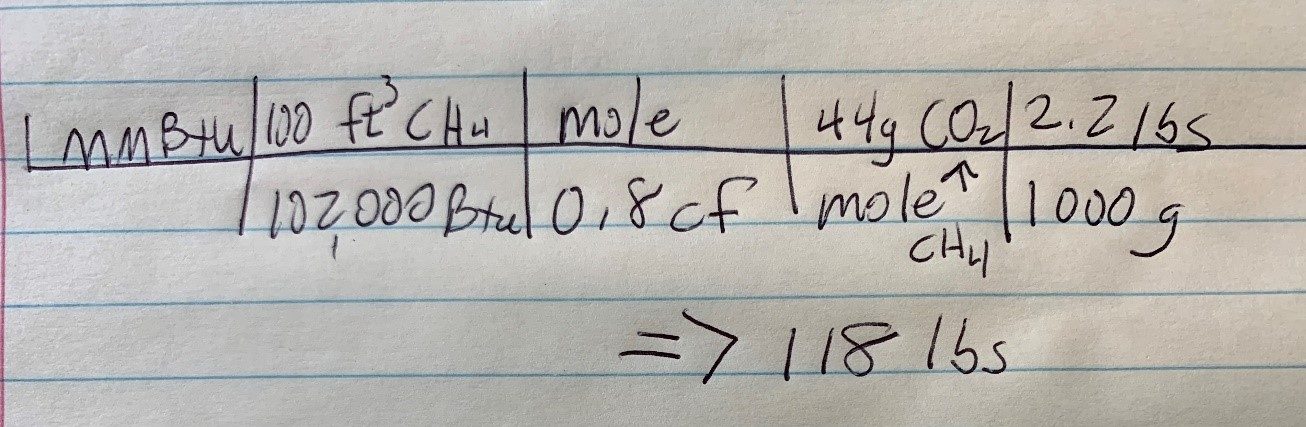 1 MMBtu | 100 ft³ CH4 | mole | 44g CO2 | 2.2 lbs
102,000 Btu | 0.8 cf | mole ↑ | 1000 g
CH4
=> 118 lbs